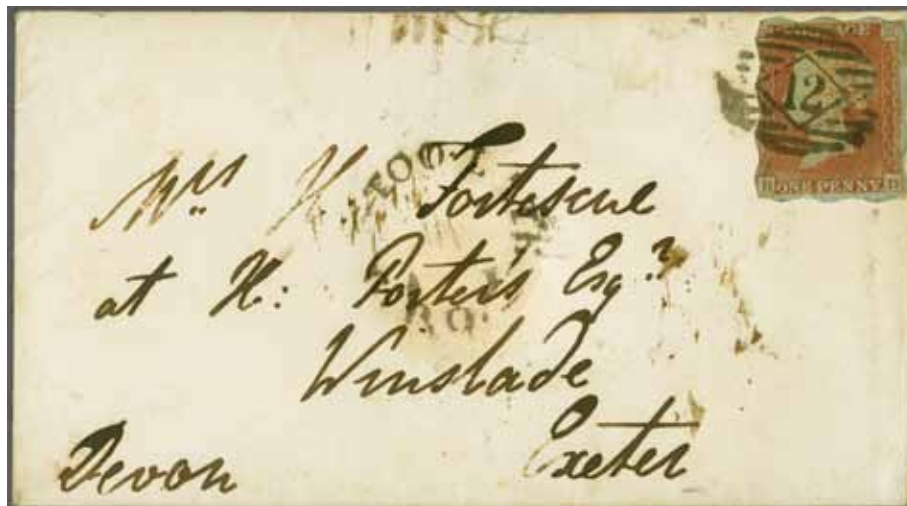 POSTAGE
12
ONE PENNY
Mrs H Fortescue
at H: Porter's Esqr
Winslade
Exeter
Devon